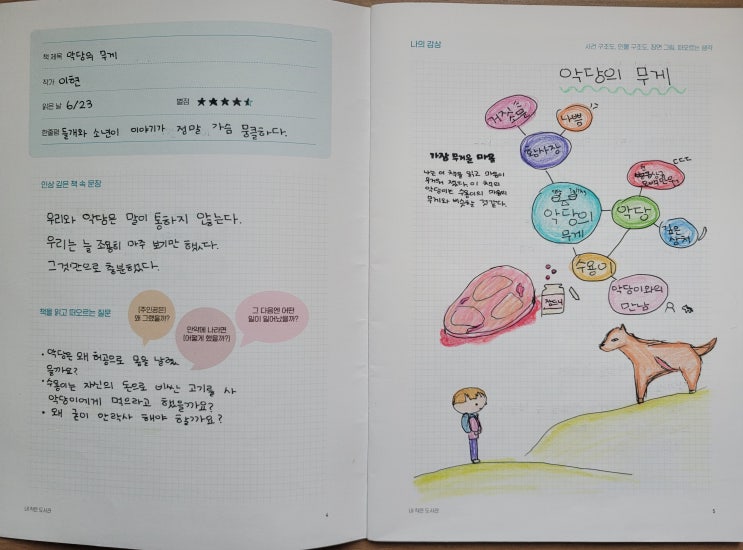 책 제목 악당의 무게
작가 이현
읽은 날 6/23 별점 ★★★★★
한줄평 들개와 소년이 이야기가 정말 가슴 뭉클하다.
인상 깊은 책 속 문장
우리와 악당은 말이 통하지 않는다.
우리는 늘 조용히 마주 보기만 했다.
그것만으로 충분했다.
책을 읽고 떠오르는 질문
[주인공은]
왜 그랬을까?
만약에 나라면
[어떻게 했을까?]
그 다음엔 어떤
일이 일어났을까?
• 악당은 왜 허공으로 몸을 날렸
을까요?
• 수용이는 자신의 돈으로 비싼 고기를 사
악당이에게 먹으라고 했을까요?
• 왜 굳이 안락사 해야 할까요?
내 작은 도서관
4
나의 감상
사건 구조도, 인물 구조도, 장면 그림, 떠오르는 생각
악당의 무게
거짓말
나쁨
황사장
가장 무거운 마음
나는 이 책을 읽고 마음이
무거워 졌다. 이 책의
악당이는 수용이의 마음의
무게와 비슷한 것 같다.
악당의
무게
악당
검은
상처
수용이
악당이와의
만남
내 작은 도서관
5